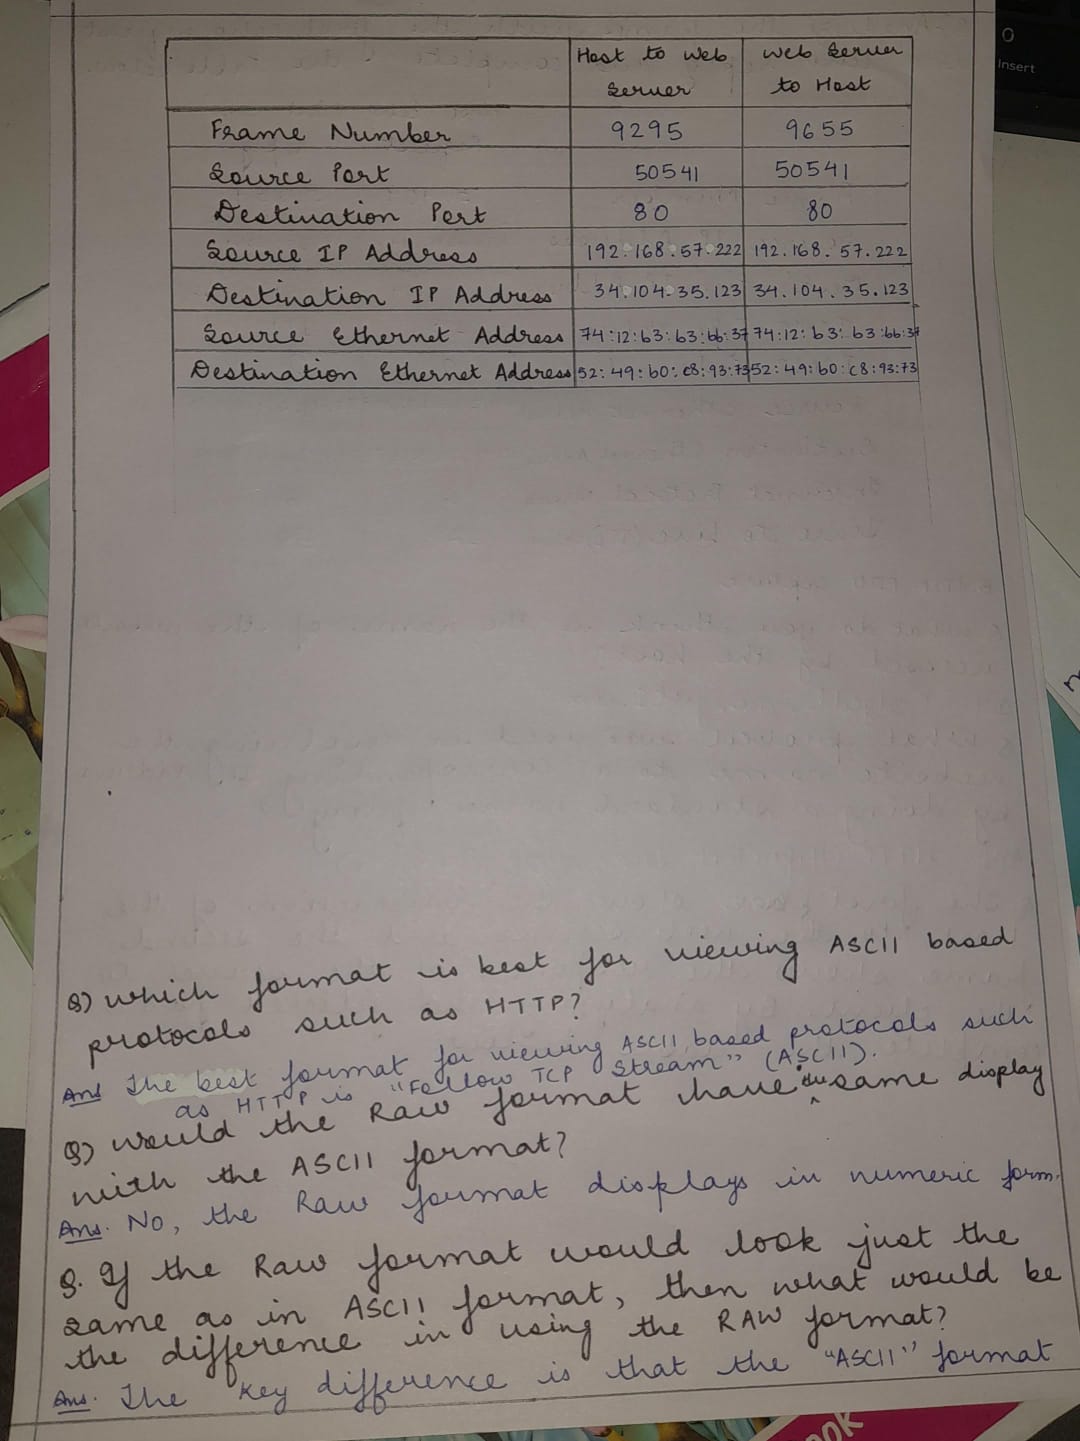 Host to Web Server
Web Server to Host
Frame Number 9295 9655
Source Port 50541 50541
Destination Port 80 80
Source IP Address 192.168.57.222 192.168.57.222
Destination IP Address 34.104.35.123 34.104.35.123
Source Ethernet Address 74:12:b3:b3:bb:37 74:12:b3:b3:bb:37
Destination Ethernet Address 52:49:b0:c8:93:73 52:49:b0:c8:93:73
Q) Which format is best for viewing ASCII based
protocols such as HTTP?
Ans The best format for viewing ASCII based protocols such
as HTTP is "Follow TCP Stream" (ASCII).
Q) Would the Raw format have the same display
with the ASCII format?
Ans. No, the Raw format displays in numeric form.
Q. If the Raw format would look just the
same as in ASCII format, then what would be
the difference in using the RAW format?
Ans. The key difference is that the "ASCII" format
Insert